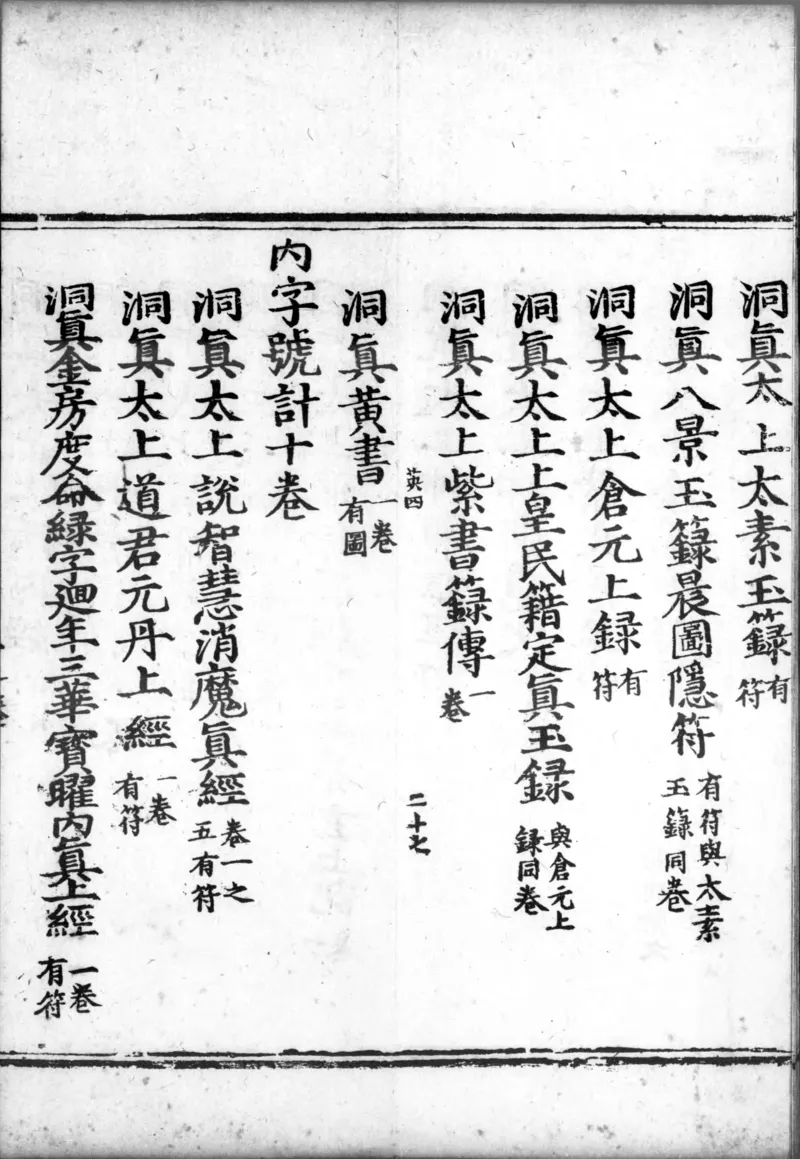 洞眞太上太素玉籙有符
洞眞八景玉籙晨圖隱符有符與太素玉籙同卷
洞眞太上倉元上録有符
洞眞太上上皇民籍定眞玉録與倉元上録同卷
洞眞太上紫書籙傳一卷
英四　二十七
洞眞黄書一卷有圖
内字號計十卷
洞眞太上說智慧消魔眞經卷一之五有符
洞眞太上道君元丹上經一卷有符
洞眞金房度命緑字迴年三華寳曜内眞上經一卷有符